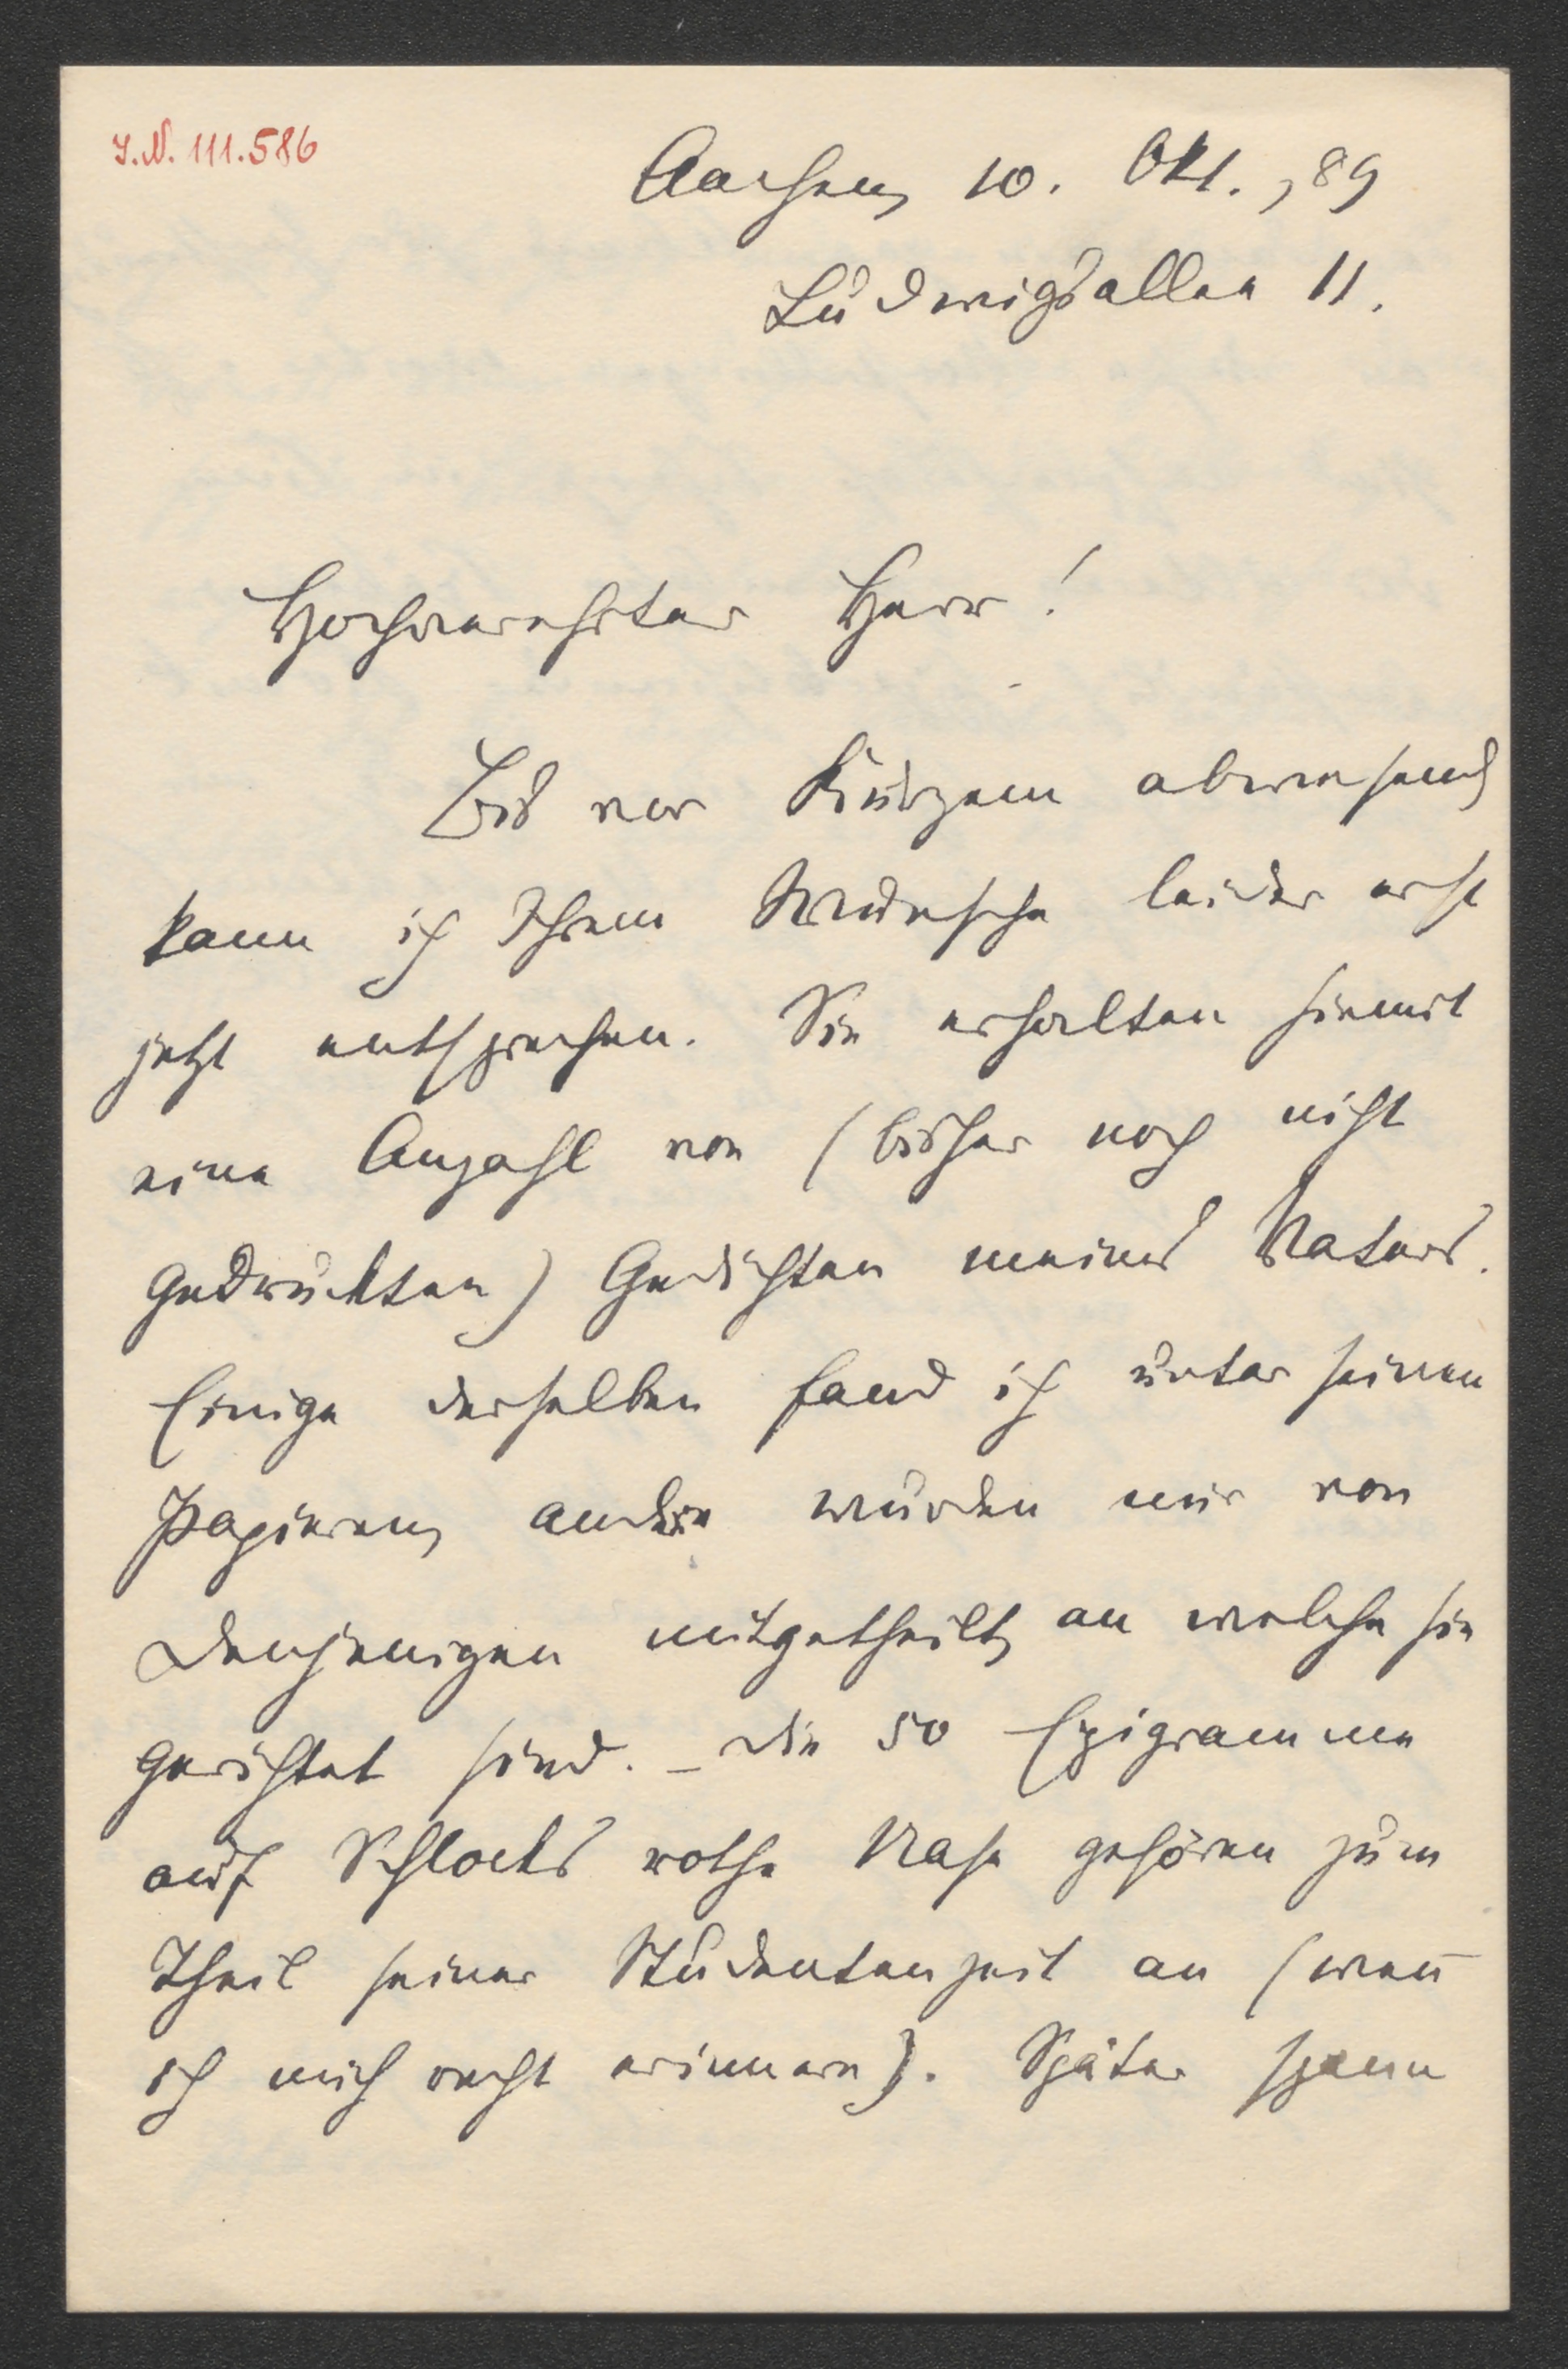 I.N. 111.586
Aachen, 10. Okt., 89
Ludwigsallee 11.
Hochverehrter Herr!
Bis vor Kurzem abwesend,
kann ich Ihrem Wunsche leider erst
jetzt entsprechen. Sie erhalten hiemit
eine Anzahl von (bisher noch nicht
gedruckten) Gedichten meines Vaters.
Einige derselben fand ich unter seinen
Papieren, andere wurden mir von
denjenigen mitgetheilt, an welche sie
gerichtet sind. – Die 50 Epigramme
auf Schlocks rothe Nase gehören zum
Theil seiner Studentenzeit an (wen̄
ich mich recht erinnere). Später spann